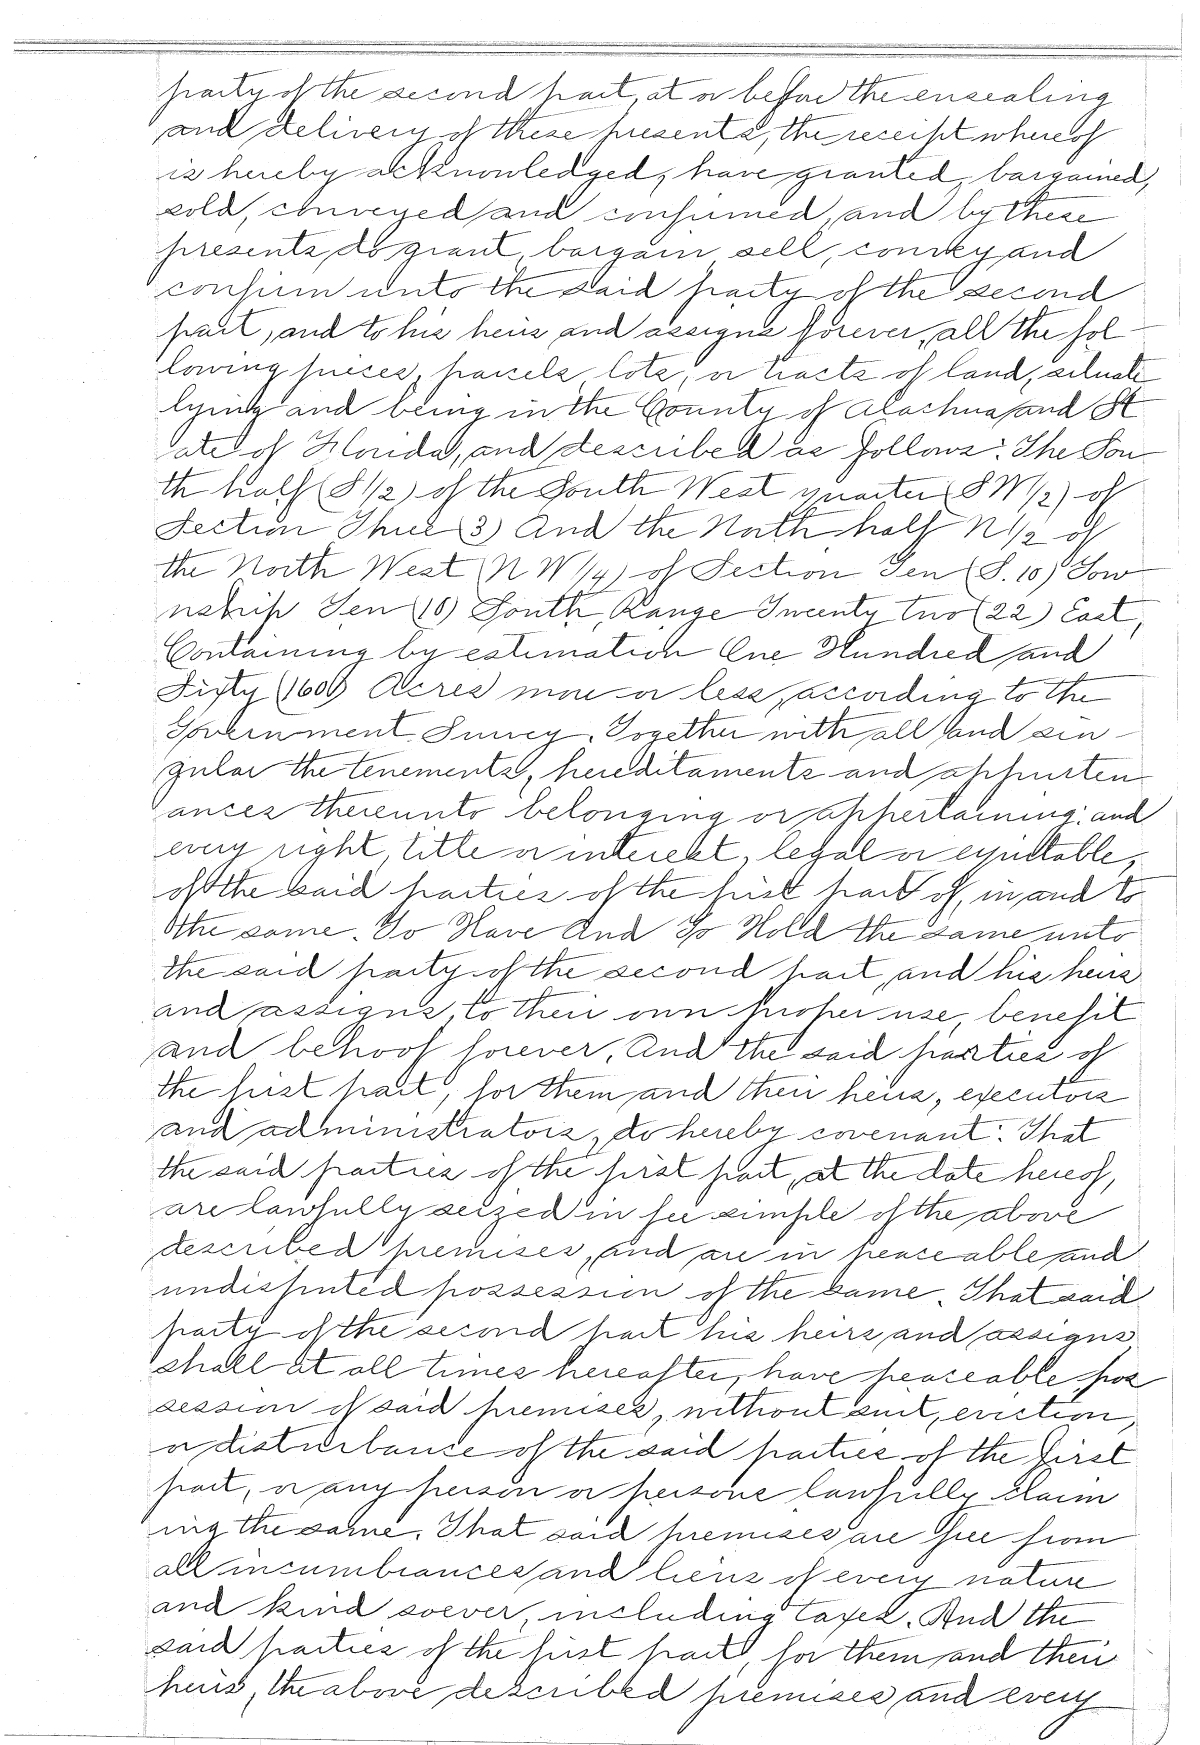 party of the second part, at or before the ensealing
and delivery of these presents, the receipt whereof
is hereby acknowledged, have granted, bargained,
sold, conveyed and confirmed, and by these
presents do grant, bargain sell, convey and
confirm unto the said party of the second
part, and to his heirs and assigns forever, all the fol-
lowing pieces, parcels, lots, or tracts of land, situate
lying and being in the County of Alachua and St
ate of Florida, and described as follows: The Sou
th half (S 1/2) of the South West quarter (S W 1/2) of
Section Three (3) And the North half N 1/2 of
the North West (N W 1/4) of Section Ten (S. 10) Tow
nship Ten (10) South, Range Twenty two (22) East,
Containing by estimation One Hundred and
Sixty (160) Acres more or less, according to the
Government Survey. Together with all and sin-
gular the tenements, hereditaments and appurten
ances thereunto belonging or appertaining: and
every right, title or interest, legal or equitable,
of the said parties of the first part of, in and to
the same. To Have And To Hold the same unto
the said party of the second part, and his heirs
and assigns, to their own proper use, benefit
and behoof forever. And the said parties of
the first part, for them and their heirs, executors
and administrators, do hereby covenant: That
the said parties of the first part, at the date hereof,
are lawfully seized in fee simple of the above
described premises, and are in peaceable and
undisputed possession of the same. That said
party of the second part his heirs and assigns
shall at all times hereafter, have peaceable pos
session of said premises, without suit, eviction,
or disturbance of the said parties of the first
part, or any person or persons lawfully claim
ing the same. That said premises are free from
all incumbrances and liens of every nature
and kind soever, including taxes. And the
said parties of the first part, for them and their
heirs, the above described premises and every